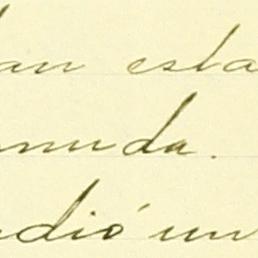 lan esta
muda.
dió un